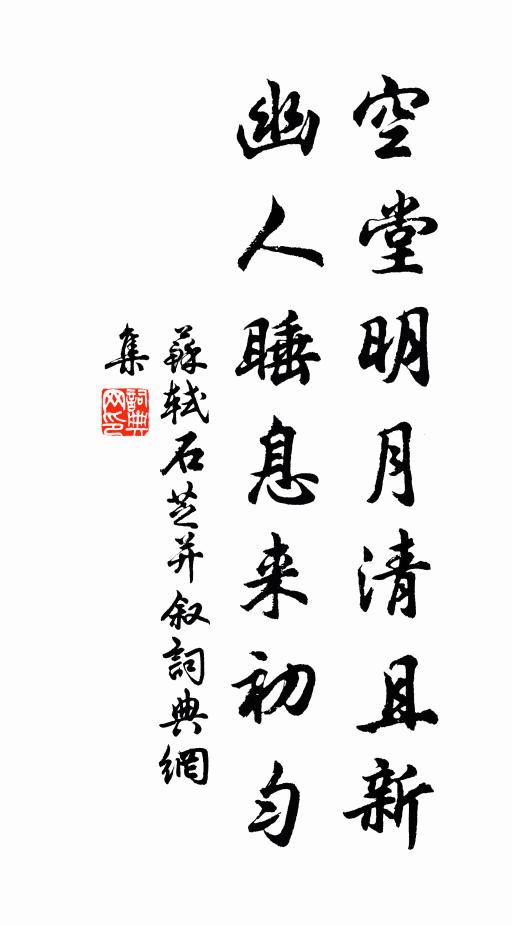 空堂明月清且新
幽人睡息来初匀
蘇軾石芝并叙詞典網
集
詞典
网印